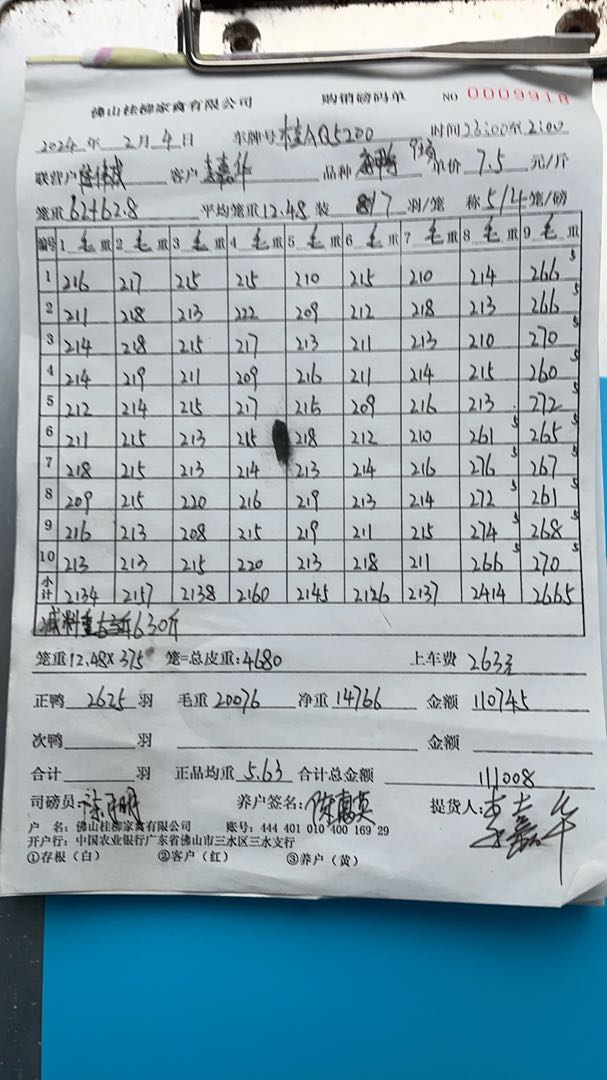 佛山桂柳家禽有限公司 购销磅码单 NO 0009918
2024年 2月4日 车牌号 桂AQ5200 时间 23:00至2:00
联营户 客户 李嘉华 品种 单价 7.5 元/斤
笼重 62+62.8 平均笼重 12.48 装 8/7 羽/笼 称 5/4 笼/磅
编号 1 毛重 2 毛重 3 毛重 4 毛重 5 毛重 6 毛重 7 毛重 8 毛重 9 毛重
1 216 217 215 215 210 215 210 214 266 5
2 211 218 213 222 209 212 218 213 266 5
3 214 218 215 217 213 211 213 210 270 5
4 214 219 211 209 216 211 214 215 260 5
5 212 214 215 217 215 209 216 213 272 5
6 211 215 213 215 218 212 210 261 5 265 5
7 218 215 213 214 213 214 216 276 5 267 5
8 209 215 220 216 219 213 214 272 5 261 5
9 216 213 208 215 219 211 215 274 5 268 5
10 213 213 215 220 213 218 211 266 5 270 5
小计 2134 2157 2138 2160 2145 2126 2137 2414 2665
减料 630斤
笼重 12.48×375 笼=总皮重: 4680 上车费 263元
正鸭 2625 羽 毛重 20076 净重 14766 金额 110745
次鸭 羽 金额
合计 羽 正品均重 5.63 合计总金额 111008
司磅员: 养户签名: 陈惠英 提货人: 李嘉华
户 名: 佛山桂柳家禽有限公司 账号: 444 401 010 400 169 29
开户行: 中国农业银行广东省佛山市三水区三水支行
①存根（白） ②客户（红） ③养户（黄）